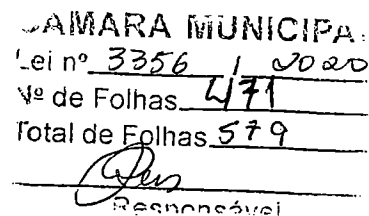 CAMARA MUNICIPA
Lei nº 3356 / 2020
Nº de Folhas 471
Total de Folhas 579
Responsável